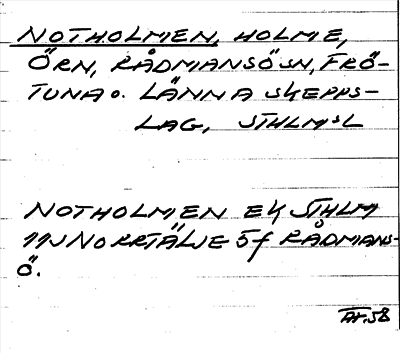 NOTHOLMEN, HOLME,
ÖRN, RÅDMANSÖSN, FRÖ-
TUNA o. LÄNNA SKEPPS-
LAG, STHLMSL
NOTHOLMEN EK STHLM
11J NORRTÄLJE 5f RÅDMANS-
Ö.
AF.58